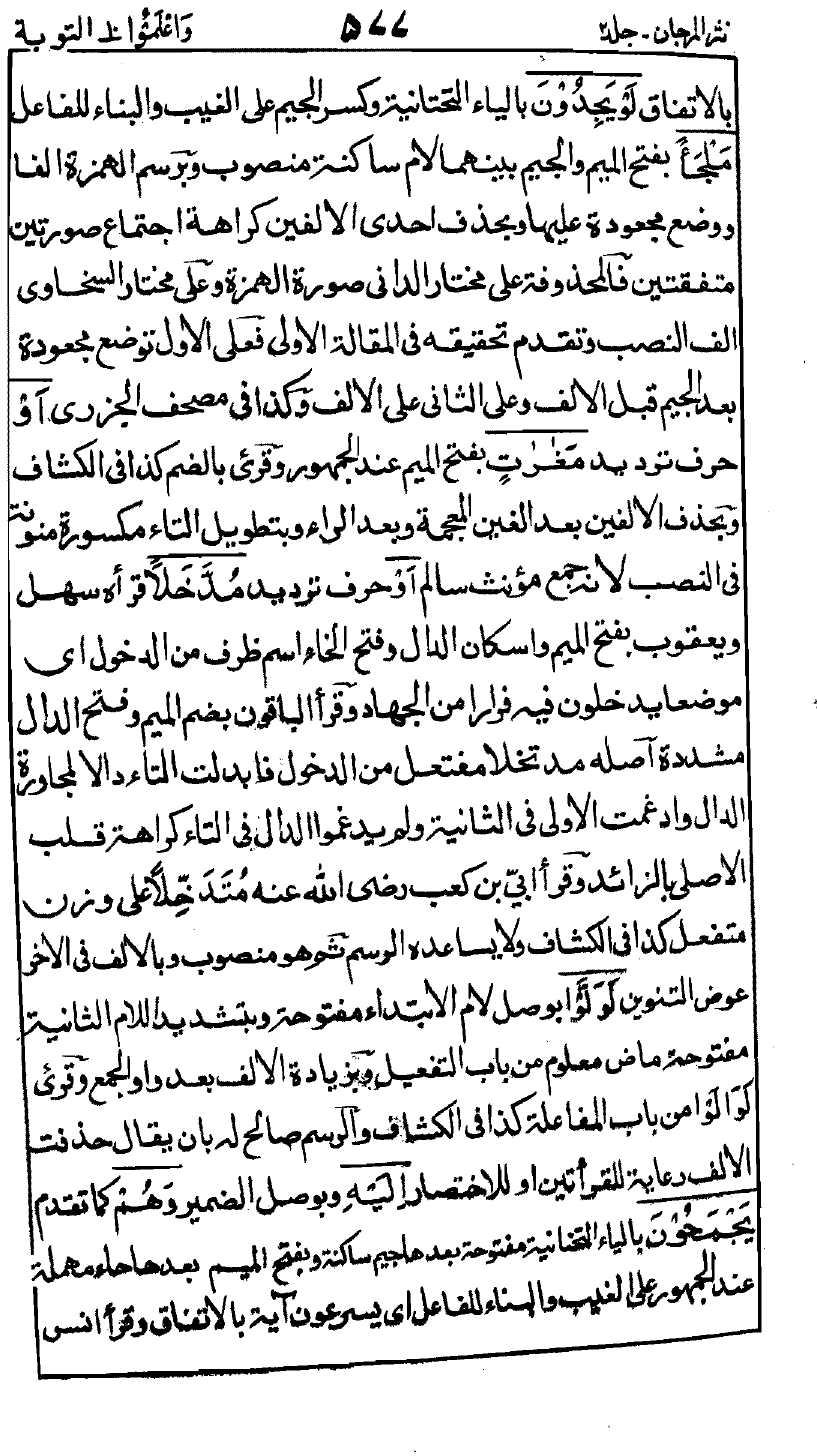 نثر المرجان - جلد ٢ ٥٧٧ وَاعْلَمُوْا ١٠ التوبة
بالاتفاق لَوْ يَجِدُوْنَ بالياء التحتانية وكسر الجيم على الغيب والبناء للفاعل
مَلْجَأً بفتح الميم والجيم بينهما لام ساكنة منصوب وبرسم الهمزة الفا
ووضع مجعودة عليها وبحذف احدى الالفين كراهة اجتماع صورتين
متفقتين فالمحذوفة على مختار الدانى صورة الهمزة وعلى مختار السخاوى
الف النصب وتقدم تحقيقه فى المقالة الاولى فعلى الاول توضع مجعودة
بعد الجيم قبل الالف وعلى الثانى على الالف وكذا فى مصحف الجزرى اَوْ
حرف ترديد مَغٰرٰتٍ بفتح الميم عند الجمهور وقرئ بالضم كذا فى الكشاف
وبحذف الالفين بعد الغين المعجمة وبعد الراء وبتطويل التاء مكسورة منونة
فى النصب لانه جمع مؤنث سالم اَوْ حرف ترديد مُدَّخَلًا قرأه سهل
ويعقوب بفتح الميم واسكان الدال وفتح الخاء اسم ظرف من الدخول اى
موضعا يدخلون فيه فرارا من الجهاد وقرأ الباقون بضم الميم وفتح الدال
مشددة اصله مدتخلا مفتعل من الدخول فابدلت التاء دالا لمجاورة
الدال وادغمت الاولى فى الثانية ولم يدغموا الدال فى التاء كراهة قلب
الاصلى بالزائد وقرأ ابىّ بن كعب رضى الله عنه مُتَدَخِّلًا على وزن
متفعل كذا فى الكشاف ولا يساعده الرسم ثم هو منصوب وبالالف فى الاخر
عوض التنوين لَوَلَّوْا بوصل لام الابتداء مفتوحة وبتشديد اللام الثانية
مفتوحة ماض معلوم من باب التفعيل وبزيادة الالف بعد واو الجمع وقرئ
لَوَالَوْا من باب المفاعلة كذا فى الكشاف والرسم صالح له بان يقال حذفت
الالف رعاية للقرأتين او للاختصار اِلَيْهِ وبوصل الضمير وَهُمْ كما تقدم
يَجْمَحُوْنَ بالياء التحتانية مفتوحة بعدها جيم ساكنة وبفتح الميم بعدها حاء مهملة
عند الجمهور على الغيب والبناء للفاعل اى يسرعون آية بالاتفاق وقرأ انس